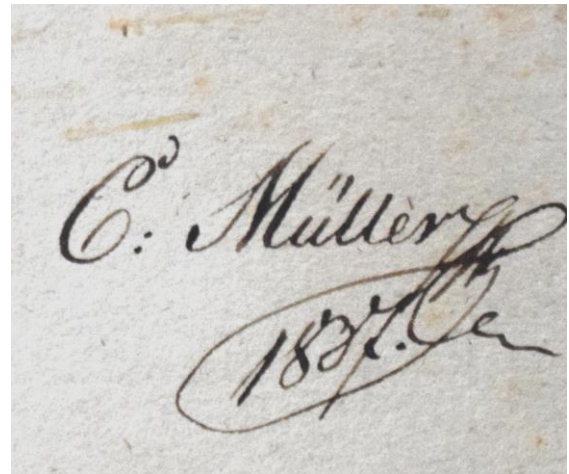 C.^d: Müller
1837.